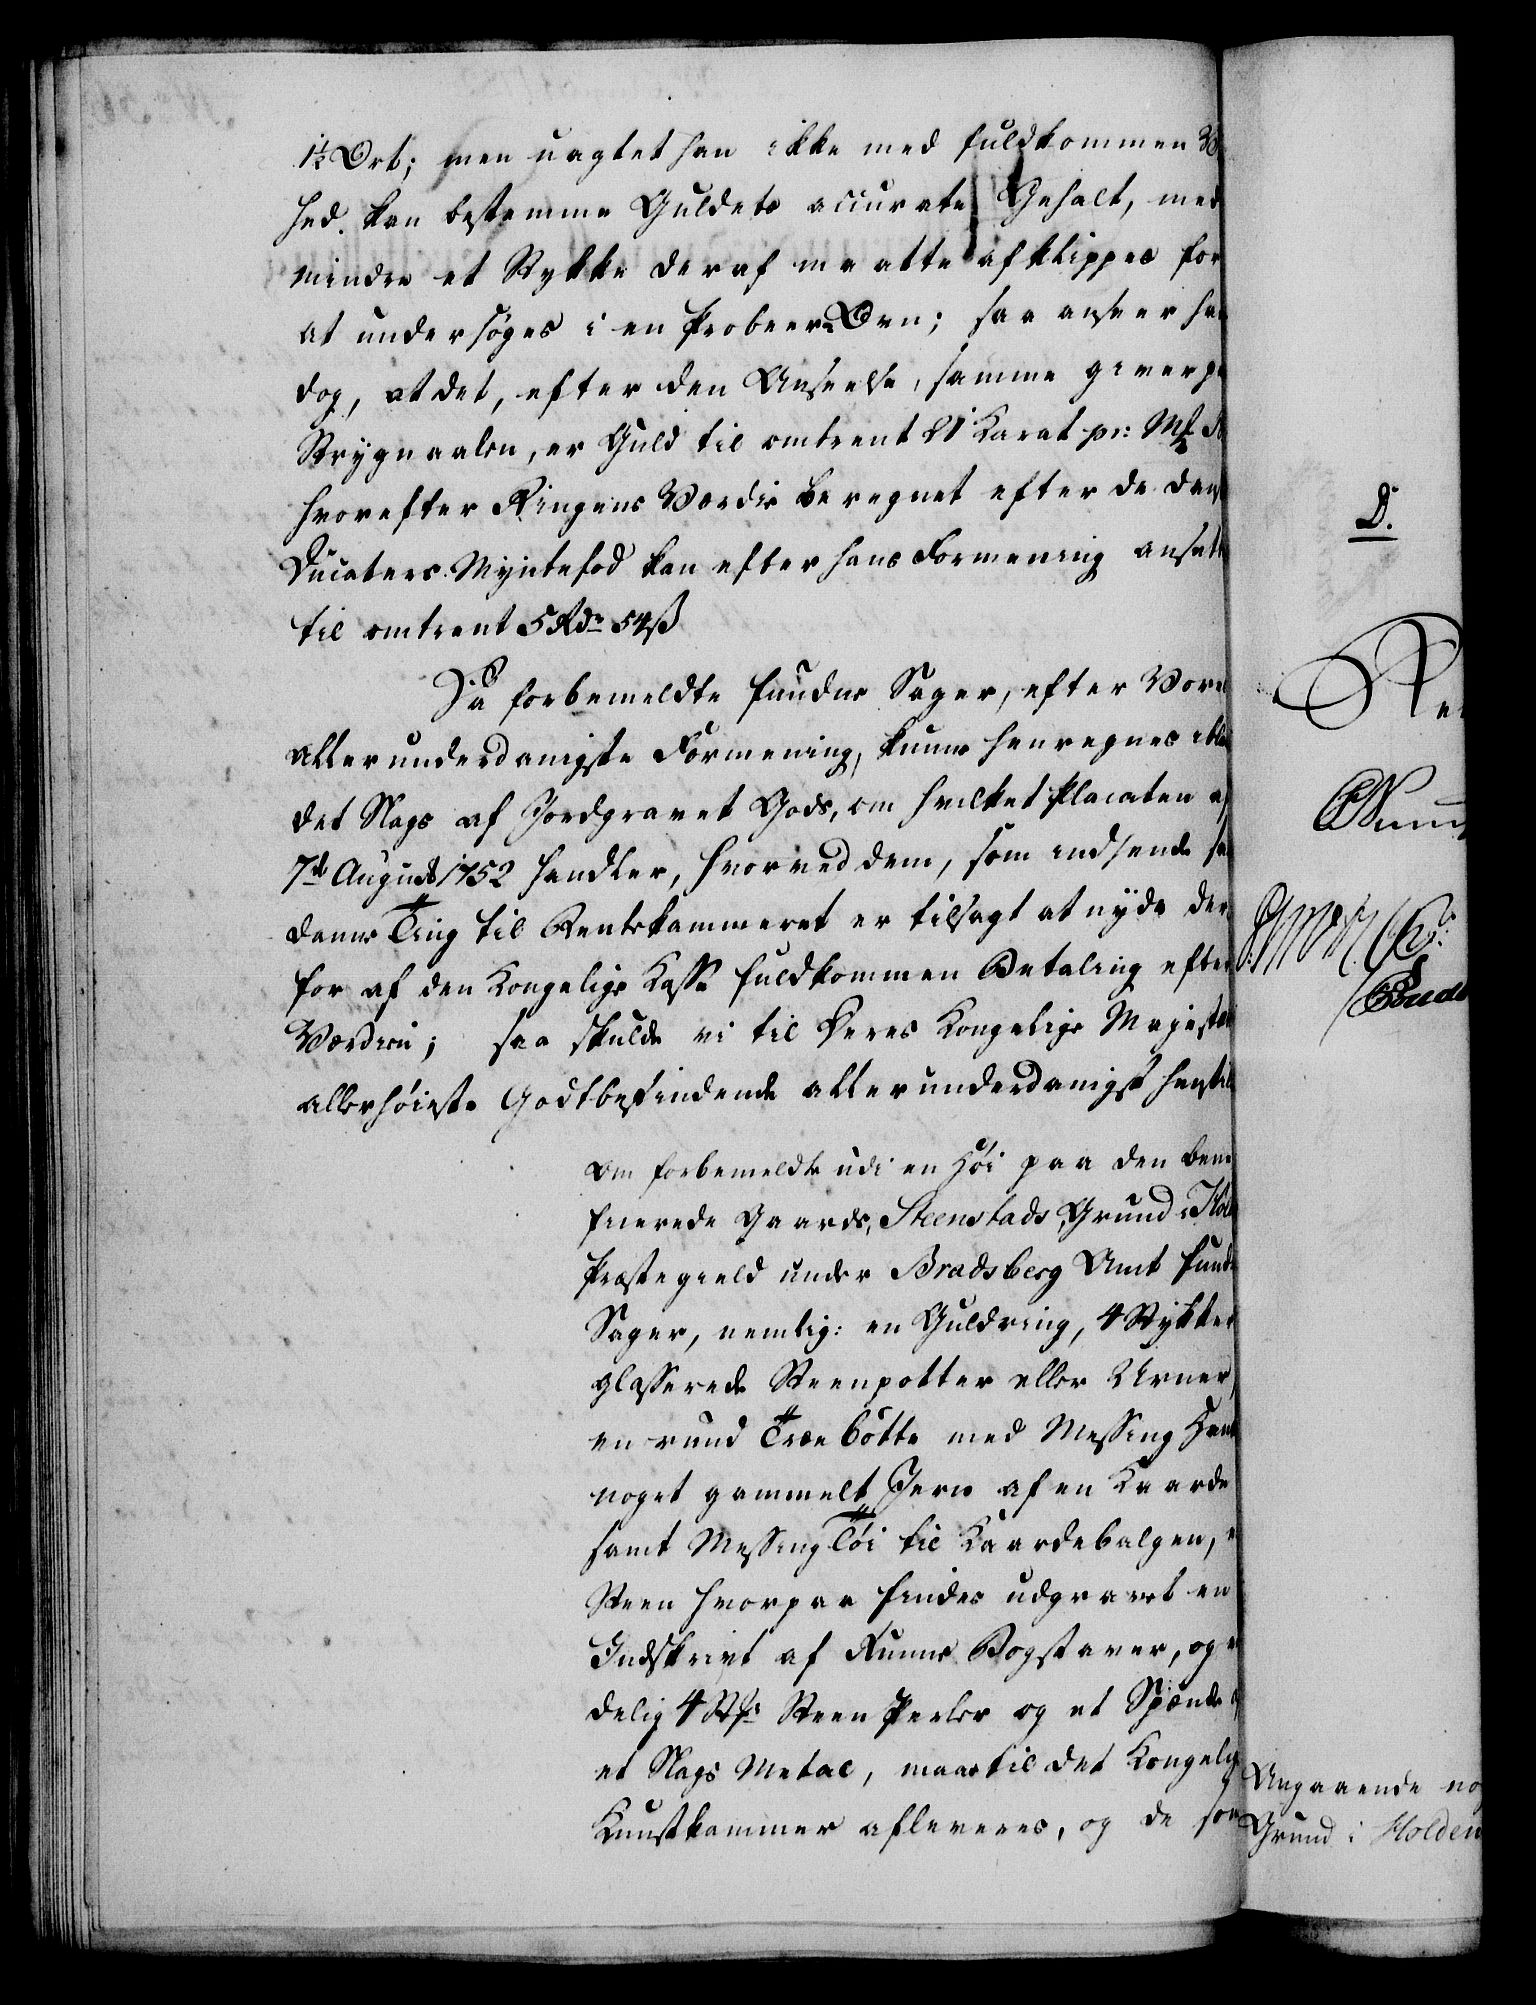 1½ Ort; men uagtet han ikke med fuldkommen
hed kan bestemme Guldets accurate Gehalt, med
mindre et Stykke deraf maatte afklippes for
at undersøges i en Probeer Ovn; saa anseer han
dog, at det, efter den Anseelse, samme giver paa
Strygnaalen, er Guld til omtrent 21 Karat pr: Mk
hvorefter Ringens Værdie beregnet efter de danske
Ducaters Myntefod kan efter hans Formening ansættes
til omtrent 5 Rdr 54 ß
Da forbemeldte fundne Sager, efter Vores
allerunderdanigste Formening, kunne henregnes iblandt
det Slags af Jordgravet Gods, om hvilket Placaten af
7de August 1752 handler, hvorved dem, som indsende saa
danne Ting til Rentekammeret er tilsagt at nyde der
for af den Kongelige Kasse fuldkommen Betaling efter
Værdien; saa skulde vi til Deres Kongelige Majestæts
allerhøieste Godtbefindende allerunderdanigst henstille
om forbemeldte udi en Høi paa den bene
ficerede Gaards, Steenstads, Grund i Hol
Præstegield under Bradsberg Amt fundne
Sager, nemlig: en Guldring, 4 Stykker
glasserede Steenpotter eller Urner,
en rund Træe Bøtte med Messing Hank
noget gammelt Jern af en Kaarde
samt Messing Tøi til Kaardebalgen,
Steen hvorpaa findes udgravet en
Indskrivt af Runne Bogstaver, og
delig 4 Stk Steen Perler og et Spænde
et Slags Metal, maae til det Kongelige
Kunstkammer afleveres, og de for
D.
Angaaende no
Grund i Holden